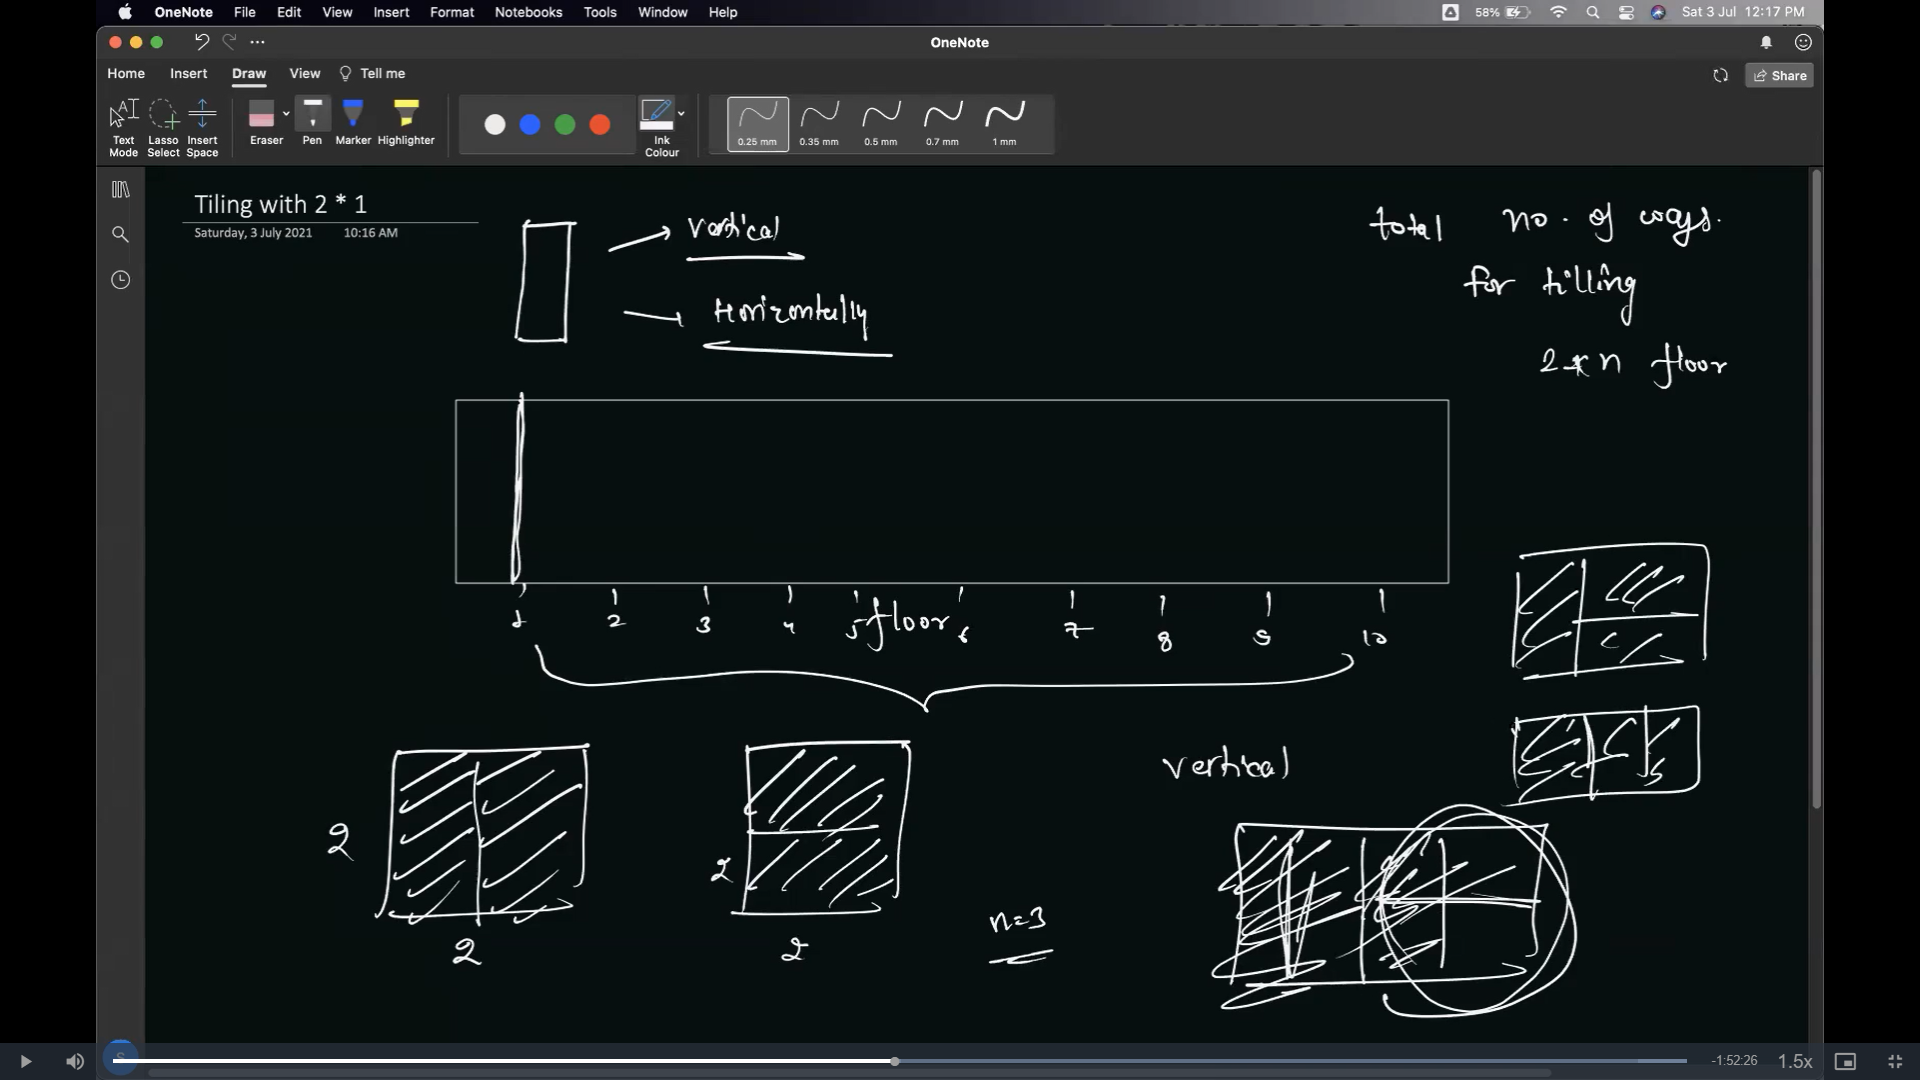 OneNote File Edit View Insert Format Notebooks Tools Window Help 58% Sat 3 Jul 12:17 PM
OneNote
Home Insert Draw View Tell me Share
Text Mode Lasso Select Insert Space Eraser Pen Marker Highlighter Ink Colour 0.25 mm 0.35 mm 0.5 mm 0.7 mm 1 mm
Tiling with 2 * 1
Saturday, 3 July 2021 10:16 AM
vertical
Horizontally
total no. of ways.
for tilling
2 * n floor
1 2 3 4 5 floor 6 7 8 9 10
vertical
2 2
n=3
2 2
-1:52:26 1.5x